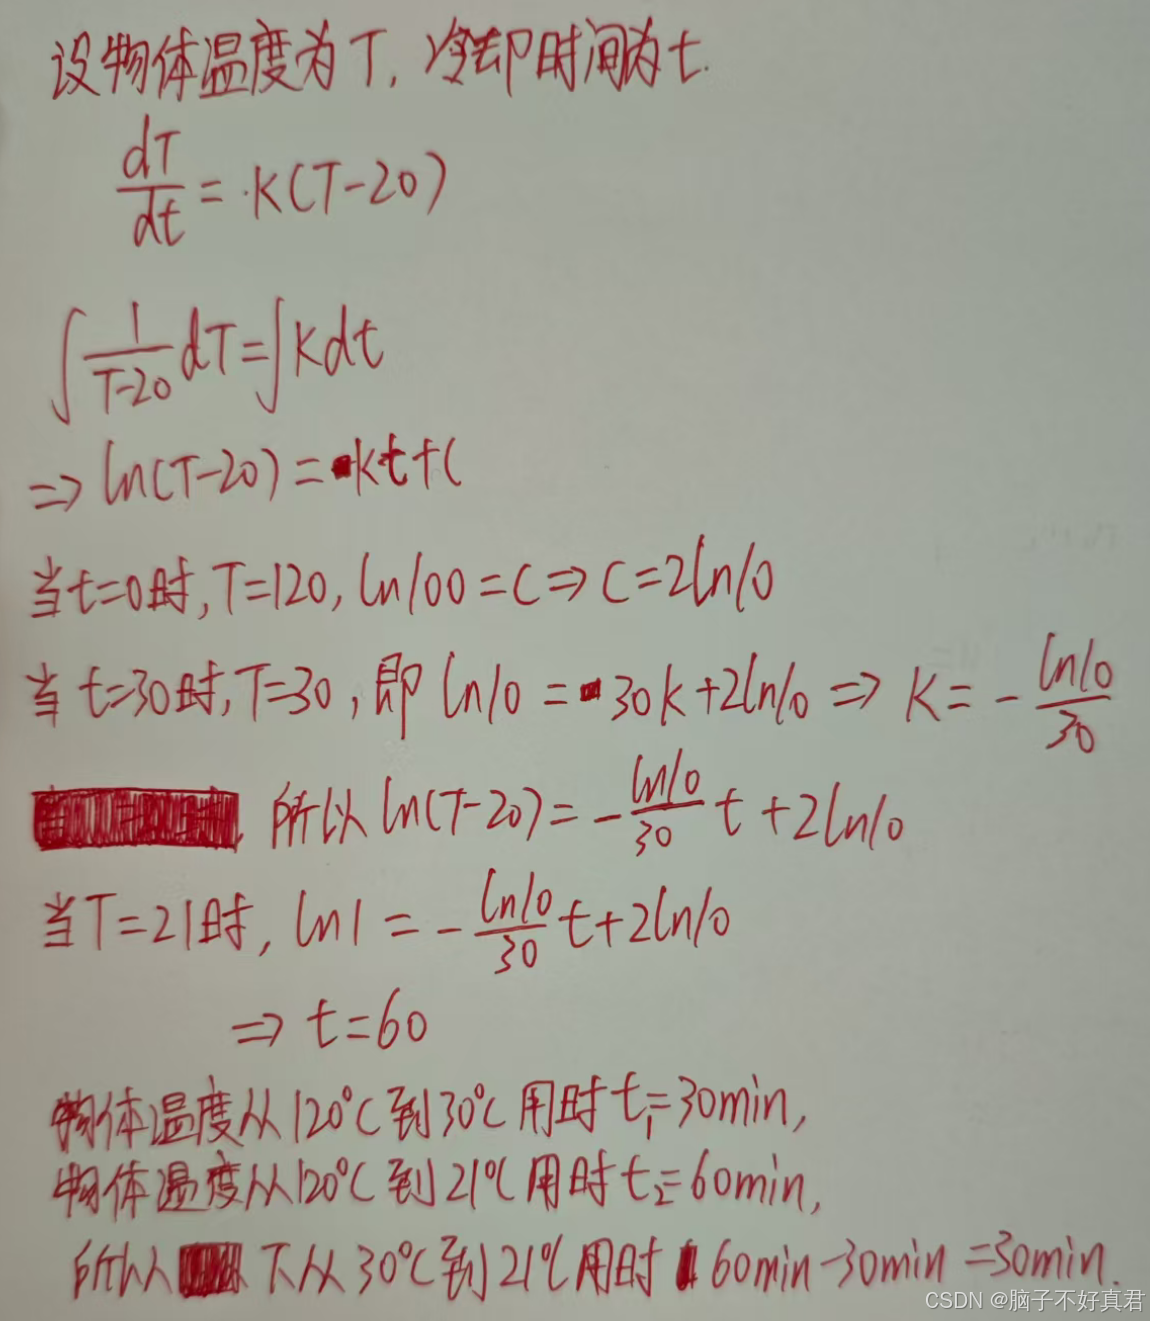 设物体温度为T,冷却时间为t.
dT/dt = k(T-20)
∫ 1/(T-20) dT = ∫ k dt
=> ln(T-20) = kt+C
当t=0时,T=120,ln100=C => C=2ln10
当t=30时,T=30,即 ln10 = 30k+2ln10 => k = - ln10/30
所以 ln(T-20) = - ln10/30 t + 2ln10
当T=21时,ln1 = - ln10/30 t+2ln10
=> t=60
物体温度从120℃到30℃用时t₁=30min,
物体温度从120℃到21℃用时t₂=60min,
所以 T从30℃到21℃用时 60min-30min=30min.
CSDN @脑子不好真君